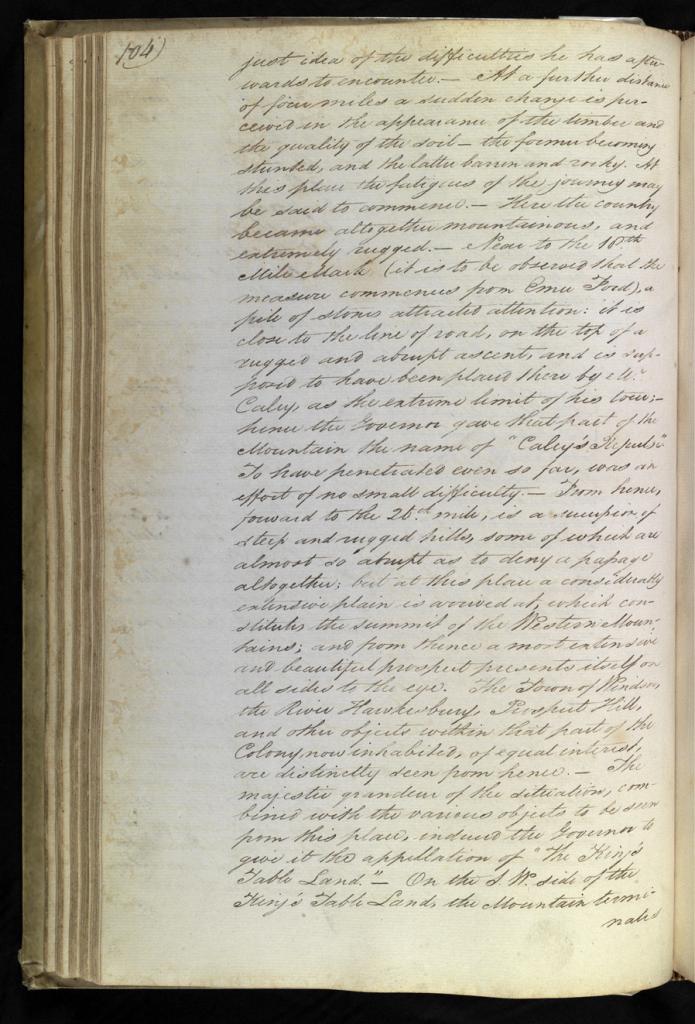 104)
just idea of the difficulties he has after-
wards to encounter.— At a further distance
of four miles a sudden change is per-
ceived in the appearance of the timber and
the quality of the soil — the former becoming
stunted, and the latter barren and rocky. At
this place the fatigues of the journey may
be said to commence.— Here the country
became altogether mountainous, and
extremely rugged.— Near to the 18th
Mile Mark (it is to be observed that the
measure commences from Emu Ford), a
pile of stones attracted attention: it is
close to the line of road, on the top of a
rugged and abrupt ascent, and is sup-
posed to have been placed there by Mr.
Caley, as the extreme limit of his tour;—
hence the Governor gave that part of the
Mountain the name of "Caley's Repulse"
To have penetrated even so far, was an
effort of no small difficulty.— From hence,
forward to the 26th mile, is a succession of
steep and rugged hills, some of which are
almost so abrupt as to deny a passage
altogether; but at this place a considerably
extensive plain is arrived at, which con-
stitutes the summit of the Western Moun-
tains; and from thence a most extensive
and beautiful prospect presents itself on
all sides to the eye. The Town of Windsor,
the River Hawkesbury, Prospect Hill,
and other objects within that part of the
Colony now inhabited, of equal interest,
are distinctly seen from hence.— The
majestic grandeur of the situation, com-
bined with the various objects to be seen
from this place, induced the Governor to
give it the appellation of "The King's
Table Land."— On the S. W. side of the
King's Table Land, the Mountain termi-
nates